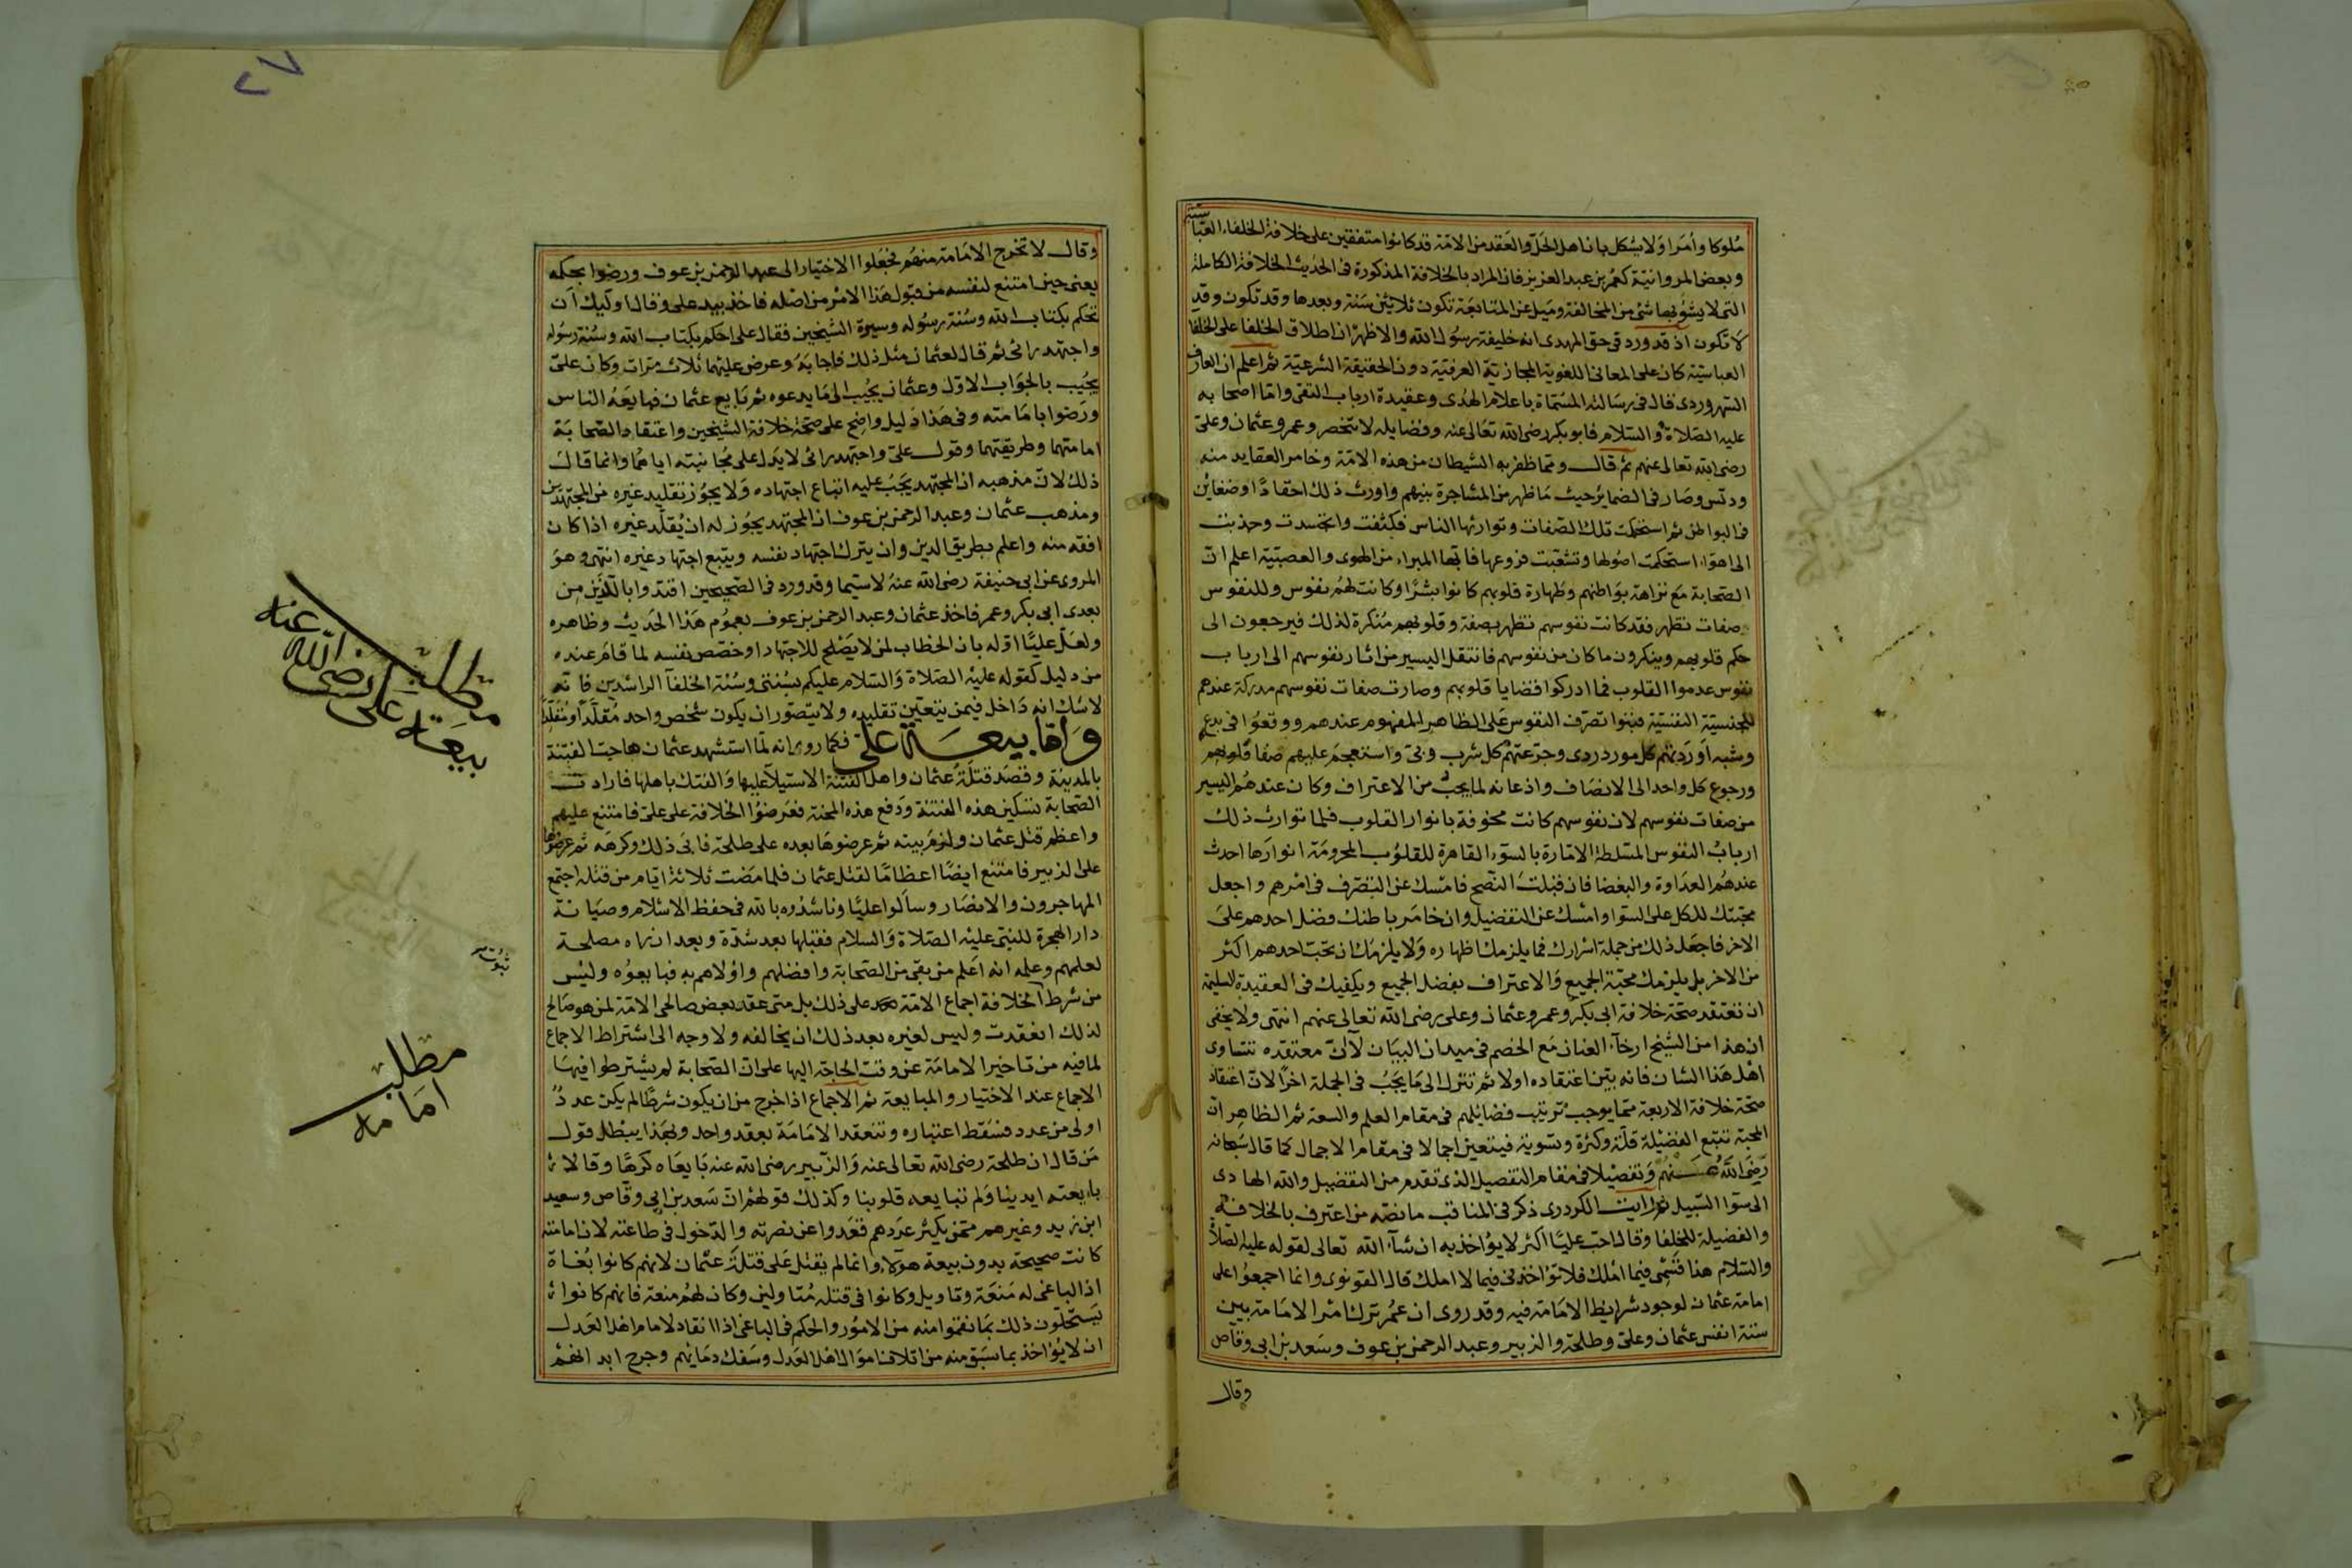 ملوكا وأمرا ولا يشكل بان اهل الحل والعقد من الامة قد كانوا متفقين على خلافة الخلفاء العباسية
وبعض المروانية كعمر بن عبد العزيز فان المراد بالخلافة المذكورة فى الحديث الخلافة الكاملة
التى لا يشوبها شئ من المخالفة وميل عن المتابعة تكون ثلاثين سنة وبعدها وقد تكون وقد
لا تكون اذ قد ورد فى حق المهدى انه خليفة رسول الله والاظهر ان اطلاق الخلفا على الخلفا
العباسية كان على المعانى اللغوية المجازية العرفية دون الحقيقة الشرعية ثم اعلم ان العارف
السهروردى قال فى رسالته المسماة باعلام الهدى وعقيدة ارباب التقى واما اصحابه
عليه الصلاة والسلام فابو بكر رضى الله تعالى عنه وفضايله لا تنحصر وعمر وعثمان وعلى
رضى الله تعالى عنهم ثم قال ومما ظفر به الشيطان من هذه الامة وخامر العقايد منه
ودنس وصار فى الضماير خبث ما ظهر من المشاجرة بينهم واورث ذلك احقادا وضغاين
فى البواطن ثم استحكمت تلك الصفات وتوارثها الناس فكثفت وتجسدت وجذبت
الى اهواء استحكمت اصولها وتشعبت فروعها فايها المبراء من الهوى والعصبية اعلم ان
الصحابة مع نزاهة بواطنهم وطهارة قلوبهم كانوا بشرا وكانت لهم نفوس وللنفوس
صفات تظهر فقد كانت نفوسهم تظهر بصفة وقلوبهم منكرة لذلك فيرجعون الى
حكم قلوبهم وينكرون ما كان من نفوسهم فانتقل اليسير من اثار نفوسهم الى ارباب
نفوس عدموا القلوب فما ادركوا قضايا قلوبهم وصارت صفات نفوسهم مدركة عندهم
للجنسية النفسية فبنوا تصرف النفوس على الظاهر المفهوم عندهم ووقعوا فى بدع
وشبه اوردتهم كل مورد ردى وجرعتهم كل شرب وبى واستعجم عليهم صفا قلوبهم
ورجوع كل واحد الى الانصاف واذعانه لما يجب من الاعتراف وكان عندهم اليسير
من صفات نفوسهم لان نفوسهم كانت محفوفة بانوار القلوب فلما توارث ذلك
ارباب النفوس المتسلطة الامارة بالسوء القاهرة للقلوب المحرومة انوارها احدث
عندهم العداوة والبغضا فان قبلت النصح فامسك عن التصرف فى امرهم واجعل
محبتك للكل على السوا وامسك عن التفضيل وان خامر باطنك فضل احدهم على
الاخر فاجعل ذلك من جملة اسرارك فما يلزمك اظهاره ولا يلزمك ان تحب احدهم اكثر
من الاخر بل يلزمك محبة الجميع والاعتراف بفضل الجميع ويكفيك فى العقيدة السليمة
ان تعتقد صحة خلافة ابى بكر وعمر وعثمان وعلى رضى الله تعالى عنهم انتهى ولا يخفى
ان هذا من الشيخ ارخاء العنان مع الخصم فى ميدان البيان لا ان معتقده تتساوى
اهل هذا الشان فانه بين اعتقاده اولا ثم تنزل الى ما يجب فى الجملة اخرا لان اعتقاد
صحة خلافة الاربعة مما يوجب ترتيب فضائلهم فى مقام العلم والسعة ثم الظاهر ان
المحبة تتبع الفضيلة قلة وكثرة وتسوية فيتعين اجمالا فى مقام الاجمال كما قال سبحانه
رضى الله عنهم وتفصيلا فى مقام التفصيل الذى تقدم من التفضيل والله الهادى
الى سوا السبيل ثم رايت الكردرى ذكر فى المناقب ما نصه من اعترف بالخلافة
والفضيلة للخلفا وقال احب عليا اكثر لا يؤاخذ به ان شاء الله تعالى لقوله عليه الصلاة
والسلام هذا قسمى فيما املك فلا تؤاخذنى فيما لا املك قال القونوى وانما اجمعوا على
امامة عثمان لوجود شرايط الامامة فيه وقد روى ان عمر ترك امر الامامة بين
ستة انفس عثمان وعلى وطلحة والزبير وعبد الرحمن بن عوف وسعد بن ابى وقاص
وقال
٢٧
وقال لا تخرج الامامة منهم فجعلوا الاختيار الى عبد الرحمن بن عوف ورضوا بحكمه
يعنى حين امتنع لنفسه من قبول هذا الامر من اصله فاخذ بيد على وقال اوليك ان
تحكم بكتاب الله وسنة رسوله وسيرة الشيخين فقال على احكم بكتاب الله وسنة رسوله
واجتهد رائى ثم قال لعثمان مثل ذلك فاجابه وعرض عليهما ثلاث مرات وكان على
يجيب بالجواب الاول وعثمان يجيب الى ما يدعوه ثم بايع عثمان فبايعه الناس
ورضوا بامامته وفى هذا دليل واضح على صحة خلافة الشيخين واعتقاد الصحابة
امامتهما وطريقتهما وقول على واجتهد رائى لا يدل على مجانبته اياهما وانما قال
ذلك لان مذهبه ان المجتهد يجب عليه اتباع اجتهاده ولا يجوز تقليد غيره من المجتهدين
ومذهب عثمان وعبد الرحمن بن عوف ان المجتهد يجوز له ان يقلد غيره اذا كان
افقه منه واعلم بطريق الدين وان يترك اجتهاد نفسه ويتبع اجتهاد غيره انتهى وهو
المروى عن ابى حنيفة رضى الله عنه لا سيما وقد ورد فى الصحيحين اقتدوا بالذين من
بعدى ابى بكر وعمر فاخذ عثمان وعبد الرحمن بن عوف بعموم هذا الحديث وظاهره
ولعل عليا اوله بان الخطاب لمن لا يصلح للاجتهاد او خصص نفسه لما قام عنده
من دليل كقوله عليه الصلاة والسلام عليكم بسنتى وسنة الخلفا الراشدين فانه
لا شك انه داخل فيمن يتعين تقليده ولا يتصور ان يكون شخص واحد مقلدا ومقلدا
واما بيعة على فكما روى انه لما استشهد عثمان هاجت الفتنة
بالمدينة وقصد قتلة عثمان واهل الفتنة الاستيلا عليها والفتك باهلها فارادت
الصحابة تسكين هذه الفتنة ودفع هذه المحنة فعرضوا الخلافة على على فامتنع عليهم
واعظم قتل عثمان ولزم بيته ثم عرضوها بعده على طلحة فابى ذلك وكرهه ثم عرضوها
على الزبير فامتنع ايضا اعظاما لقتل عثمان فلما مضت ثلاثة ايام من قتله اجتمع
المهاجرون والانصار وسالوا عليا وناشدوه بالله فى حفظ الاسلام وصيانة
دار الهجرة للنبى عليه الصلاة والسلام فقبلها بعد شدة وبعد ان راه مصلحة
لعلمهم وعلمه انه اعلم من بقى من الصحابة وافضلهم واولاهم به فبايعوه وليس
من شرط الخلافة اجماع الامة على ذلك بل متى عقد بعض صالحى الامة لمن هو صالح
لذلك انعقدت وليس لغيره بعد ذلك ان يخالفه ولا وجه الى اشتراط الاجماع
لما فيه من تاخير الامامة عن وقت الحاجة اليها على ان الصحابة لم يشترطوا فيها
الاجماع عند الاختيار والمبايعة ثم الاجماع اذا خرج من ان يكون شرطا لم يكن عدد
اولى من عدد فسقط اعتباره وتنعقد الامامة بعقد واحد وبهذا يبطل قول
من قال ان طلحة رضى الله تعالى عنه والزبير رضى الله عنه بايعاه كرها وقالا
بايعته ايدينا ولم تبايعه قلوبنا وكذلك قولهم ان سعد بن ابى وقاص وسعيد
ابن زيد وغيرهم ممن يكثر عددهم قعدوا عن نصرته والدخول فى طاعته لان امامته
كانت صحيحة بدون بيعة هؤلاء وانما لم يقتل على قتلة عثمان لانهم كانوا بغاة
اذ الباغى له منعة وتاويل وكانوا فى قتله متاولين وكان لهم منعة فانهم كانوا
يستحلون ذلك بما نقموا منه من الامور والحكم فى الباغى اذا انقاد لامام اهل العدل
ان لا يؤاخذ بما سبق منه من اتلاف اموال اهل العدل وسفك دمائهم وجرح ابدانهم
مطلب
بيعة على رضى الله عنه
ثبوت
مطلب
امامه